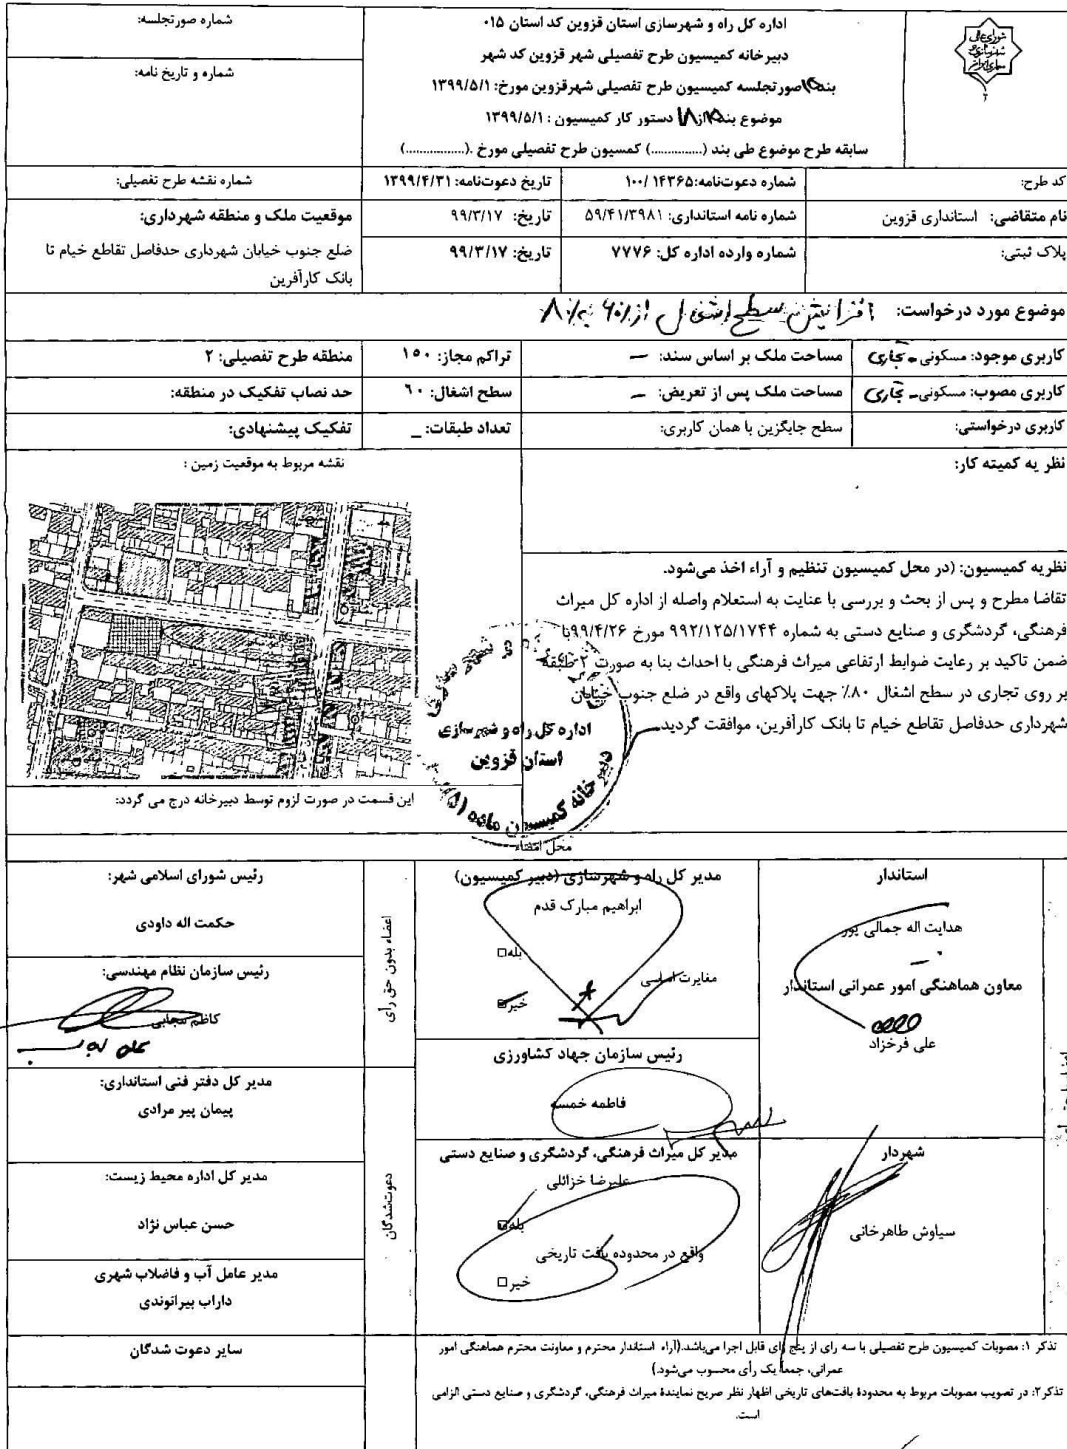 اداره کل راه و شهرسازی استان قزوین کد استان ۰۱۵
دبیرخانه کمیسیون طرح تفصیلی شهر قزوین کد شهر
صورتجلسه کمیسیون طرح تفصیلی شهرقزوین مورخ: ۱۳۹۹/۵/۱
موضوع بند ۱۵ از ۱۸ دستور کار کمیسیون : ۱۳۹۹/۵/۱
سابقه طرح موضوع طی بند (..............) کمسیون طرح تفصیلی مورخ .(................)
شماره صورتجلسه:
شماره و تاریخ نامه:
شورای عالی شهرسازی و معماری ایران
کد طرح:
شماره دعوت‌نامه:۱۰۰/ ۱۴۳۶۵
تاریخ دعوت‌نامه: ۱۳۹۹/۴/۳۱
شماره نقشه طرح تفصیلی:
نام متقاضی: استانداری قزوین
شماره نامه استانداری: ۵۹/۴۱/۳۹۸۱
تاریخ: ۹۹/۳/۱۷
موقعیت ملک و منطقه شهرداری:
پلاک ثبتی:
شماره وارده اداره کل: ۷۷۷۶
تاریخ: ۹۹/۳/۱۷
ضلع جنوب خیابان شهرداری حدفاصل تقاطع خیام تا
بانک کارآفرین
موضوع مورد درخواست: افزایش سطح اشغال از ۶۰٪ به ۸۰٪
کاربری موجود: مسکونی - تجاری
مساحت ملک بر اساس سند: —
تراکم مجاز: ۱۵۰
منطقه طرح تفصیلی: ۲
کاربری مصوب: مسکونی - تجاری
مساحت ملک پس از تعریض: —
سطح اشغال: ۶۰
حد نصاب تفکیک در منطقه:
کاربری درخواستی:
سطح جایگزین با همان کاربری:
تعداد طبقات: _
تفکیک پیشنهادی:
نظر یه کمیته کار:
نقشه مربوط به موقعیت زمین :
نظریه کمیسیون: (در محل کمیسیون تنظیم و آراء اخذ می‌شود.
تقاضا مطرح و پس از بحث و بررسی با عنایت به استعلام واصله از اداره کل میراث
فرهنگی، گردشگری و صنایع دستی به شماره ۹۹۲/۱۲۵/۱۷۴۴ مورخ ۹۹/۴/۲۶ با
ضمن تاکید بر رعایت ضوابط ارتفاعی میراث فرهنگی با احداث بنا به صورت ۲ طبقه
بر روی تجاری در سطح اشغال ۸۰٪ جهت پلاکهای واقع در ضلع جنوب خیابان
شهرداری حدفاصل تقاطع خیام تا بانک کارآفرین، موافقت گردید
اداره کل راه و شهرسازی
استان قزوین
دبیرخانه کمیسیون ماده (۵)
این قسمت در صورت لزوم توسط دبیرخانه درج می گردد:
محل امضاء
استاندار
هدایت اله جمالی پور
معاون هماهنگی امور عمرانی استاندار
علی فرخزاد
مدیر کل راه و شهرسازی (دبیر کمیسیون)
ابراهیم مبارک قدم
بله
مغایرت اساسی
خیر
اعضاء بدون حق رأی
رئیس شورای اسلامی شهر:
حکمت اله داودی
رئیس سازمان نظام مهندسی:
کاظم مجابی
رئیس سازمان جهاد کشاورزی
فاطمه خمسه
مدیر کل دفتر فنی استانداری:
پیمان پیر مرادی
شهردار
سیاوش طاهرخانی
مدیر کل میراث فرهنگی، گردشگری و صنایع دستی
علیرضا خزائلی
بله
واقع در محدوده بافت تاریخی
خیر
دعوت‌شدگان
مدیر کل اداره محیط زیست:
حسن عباس نژاد
مدیر عامل آب و فاضلاب شهری
داراب بیرانوندی
سایر دعوت شدگان
تذکر ۱: مصوبات کمیسیون طرح تفصیلی با سه رای از پنج رای قابل اجرا می‌باشد.(آراء استاندار محترم و معاونت محترم هماهنگی امور
عمرانی، جمعاً یک رأی محسوب می‌شود.)
تذکر۲: در تصویب مصوبات مربوط به محدودهٔ بافت‌های تاریخی اظهار نظر صریح نمایندهٔ میراث فرهنگی، گردشگری و صنایع دستی الزامی
است.